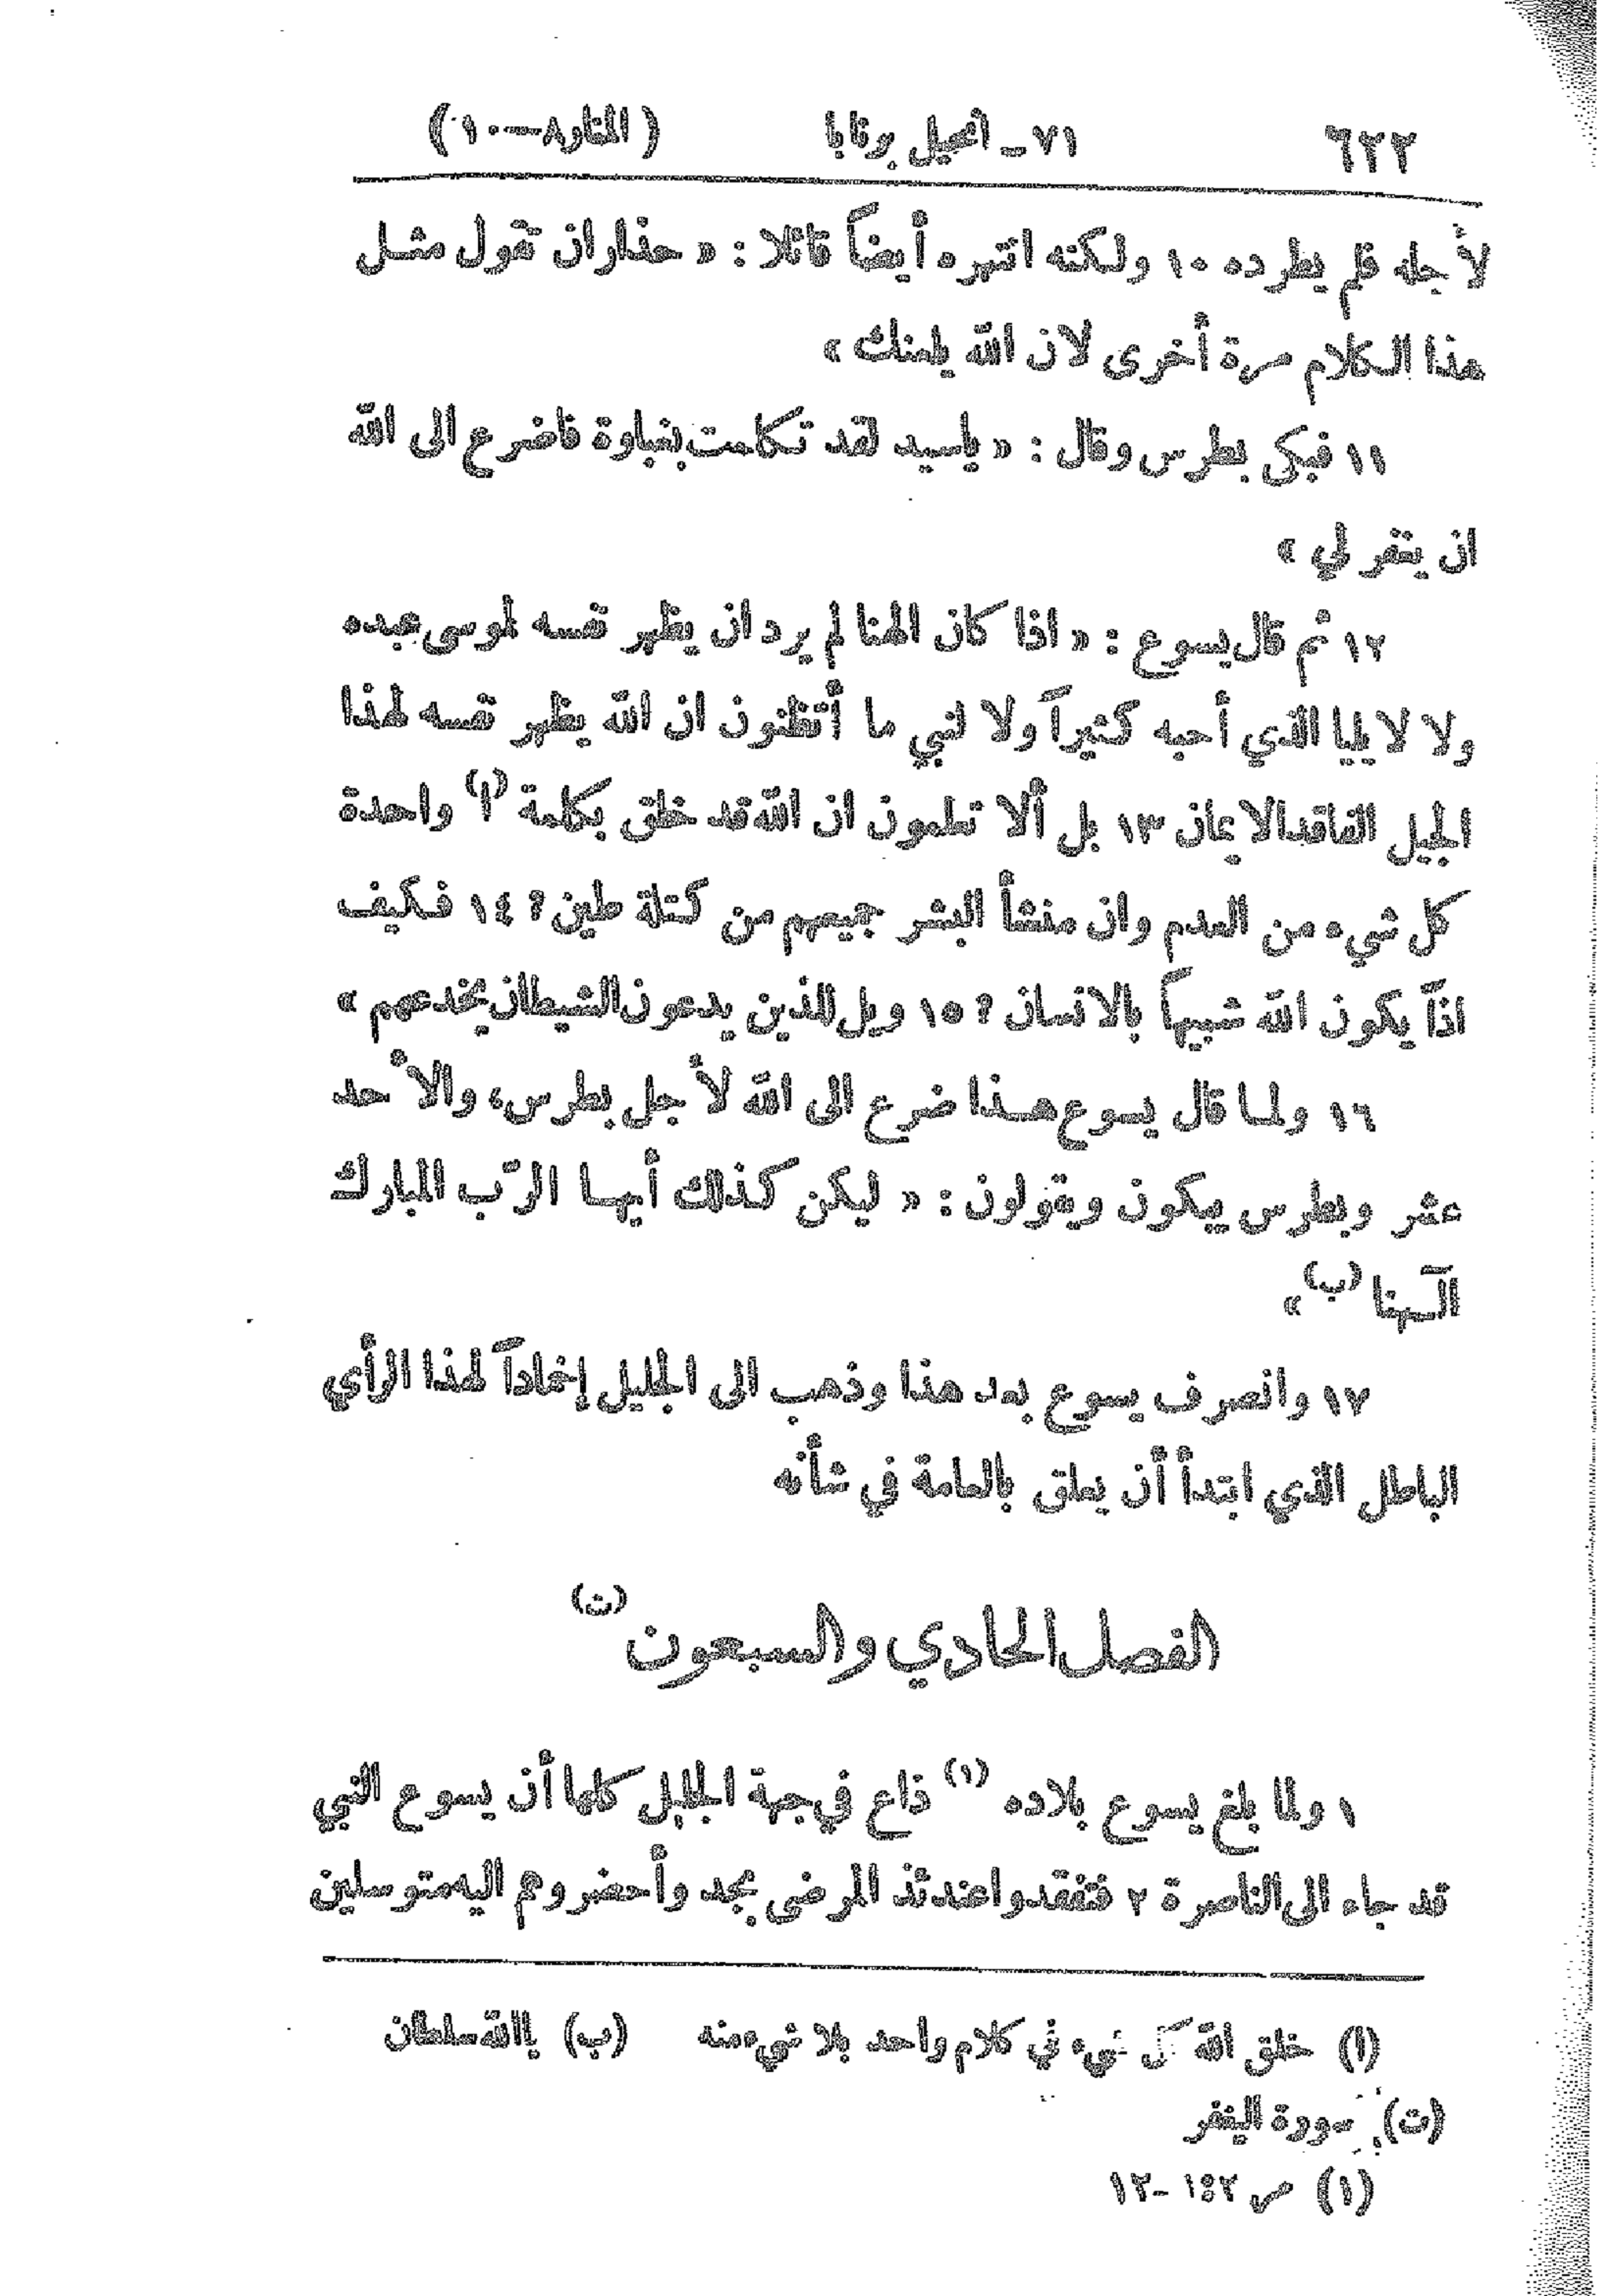 ٦٢٢ ٧١ـ انجيل برنابا (المنار٨—١٠)
لأجله فلم يطرده ١٠ ولكنه انتهره أيضاً قائلا : « حذاران تقول مثل
هذا الكلام مرة أخرى لان الله يلعنك »
١١ فبكى بطرس وقال : « ياسيد لقد تكلمت بغباوة فاضرع الى الله
ان يغفر لي »
١٢ ثم قال يسوع : « اذا كان الهنا لم يرد ان يظهر نفسه لموسى عبده
ولا لايليا الذي أحبه كثيراً ولا لنبي ما أتظنون ان الله يظهر نفسه لهذا
الجيل الفاقد الايمان ١٣ بل ألا تعلمون ان الله قد خلق بكلمة (ا) واحدة
كل شيء من العدم وان منشأ البشر جميعهم من كتلة طين ؟ ١٤ فكيف
اذاً يكون الله شبيهاً بالانسان ؟ ١٥ ويل للذين يدعون الشيطان يخدعهم »
١٦ ولما قال يسوع هذا ضرع الى الله لأجل بطرس، والأحد
عشر وبطرس يبكون ويقولون : « ليكن كذلك أيها الرّب المبارك
آلهنا (ب) »
١٧ وانصرف يسوع بعد هذا وذهب الى الجليل إخماداً لهذا الرأي
الباطل الذي ابتدأ أن يعلق بالعامة في شأنه
الفصل الحادي والسبعون (ت)
١ ولما بلغ يسوع بلاده (١) ذاع في جهة الجليل كلها أن يسوع النبي
قد جاء الى الناصرة ٢ فتفقدوا عندئذ المرضى بجد وأحضروهم اليه متوسلين
(ا) خلق الله كل شيء في كلام واحد بلا شيء منه (ب) يا الله سلطان
(ت) سورة الغفر
(١) ص ٢:١ـ١٢